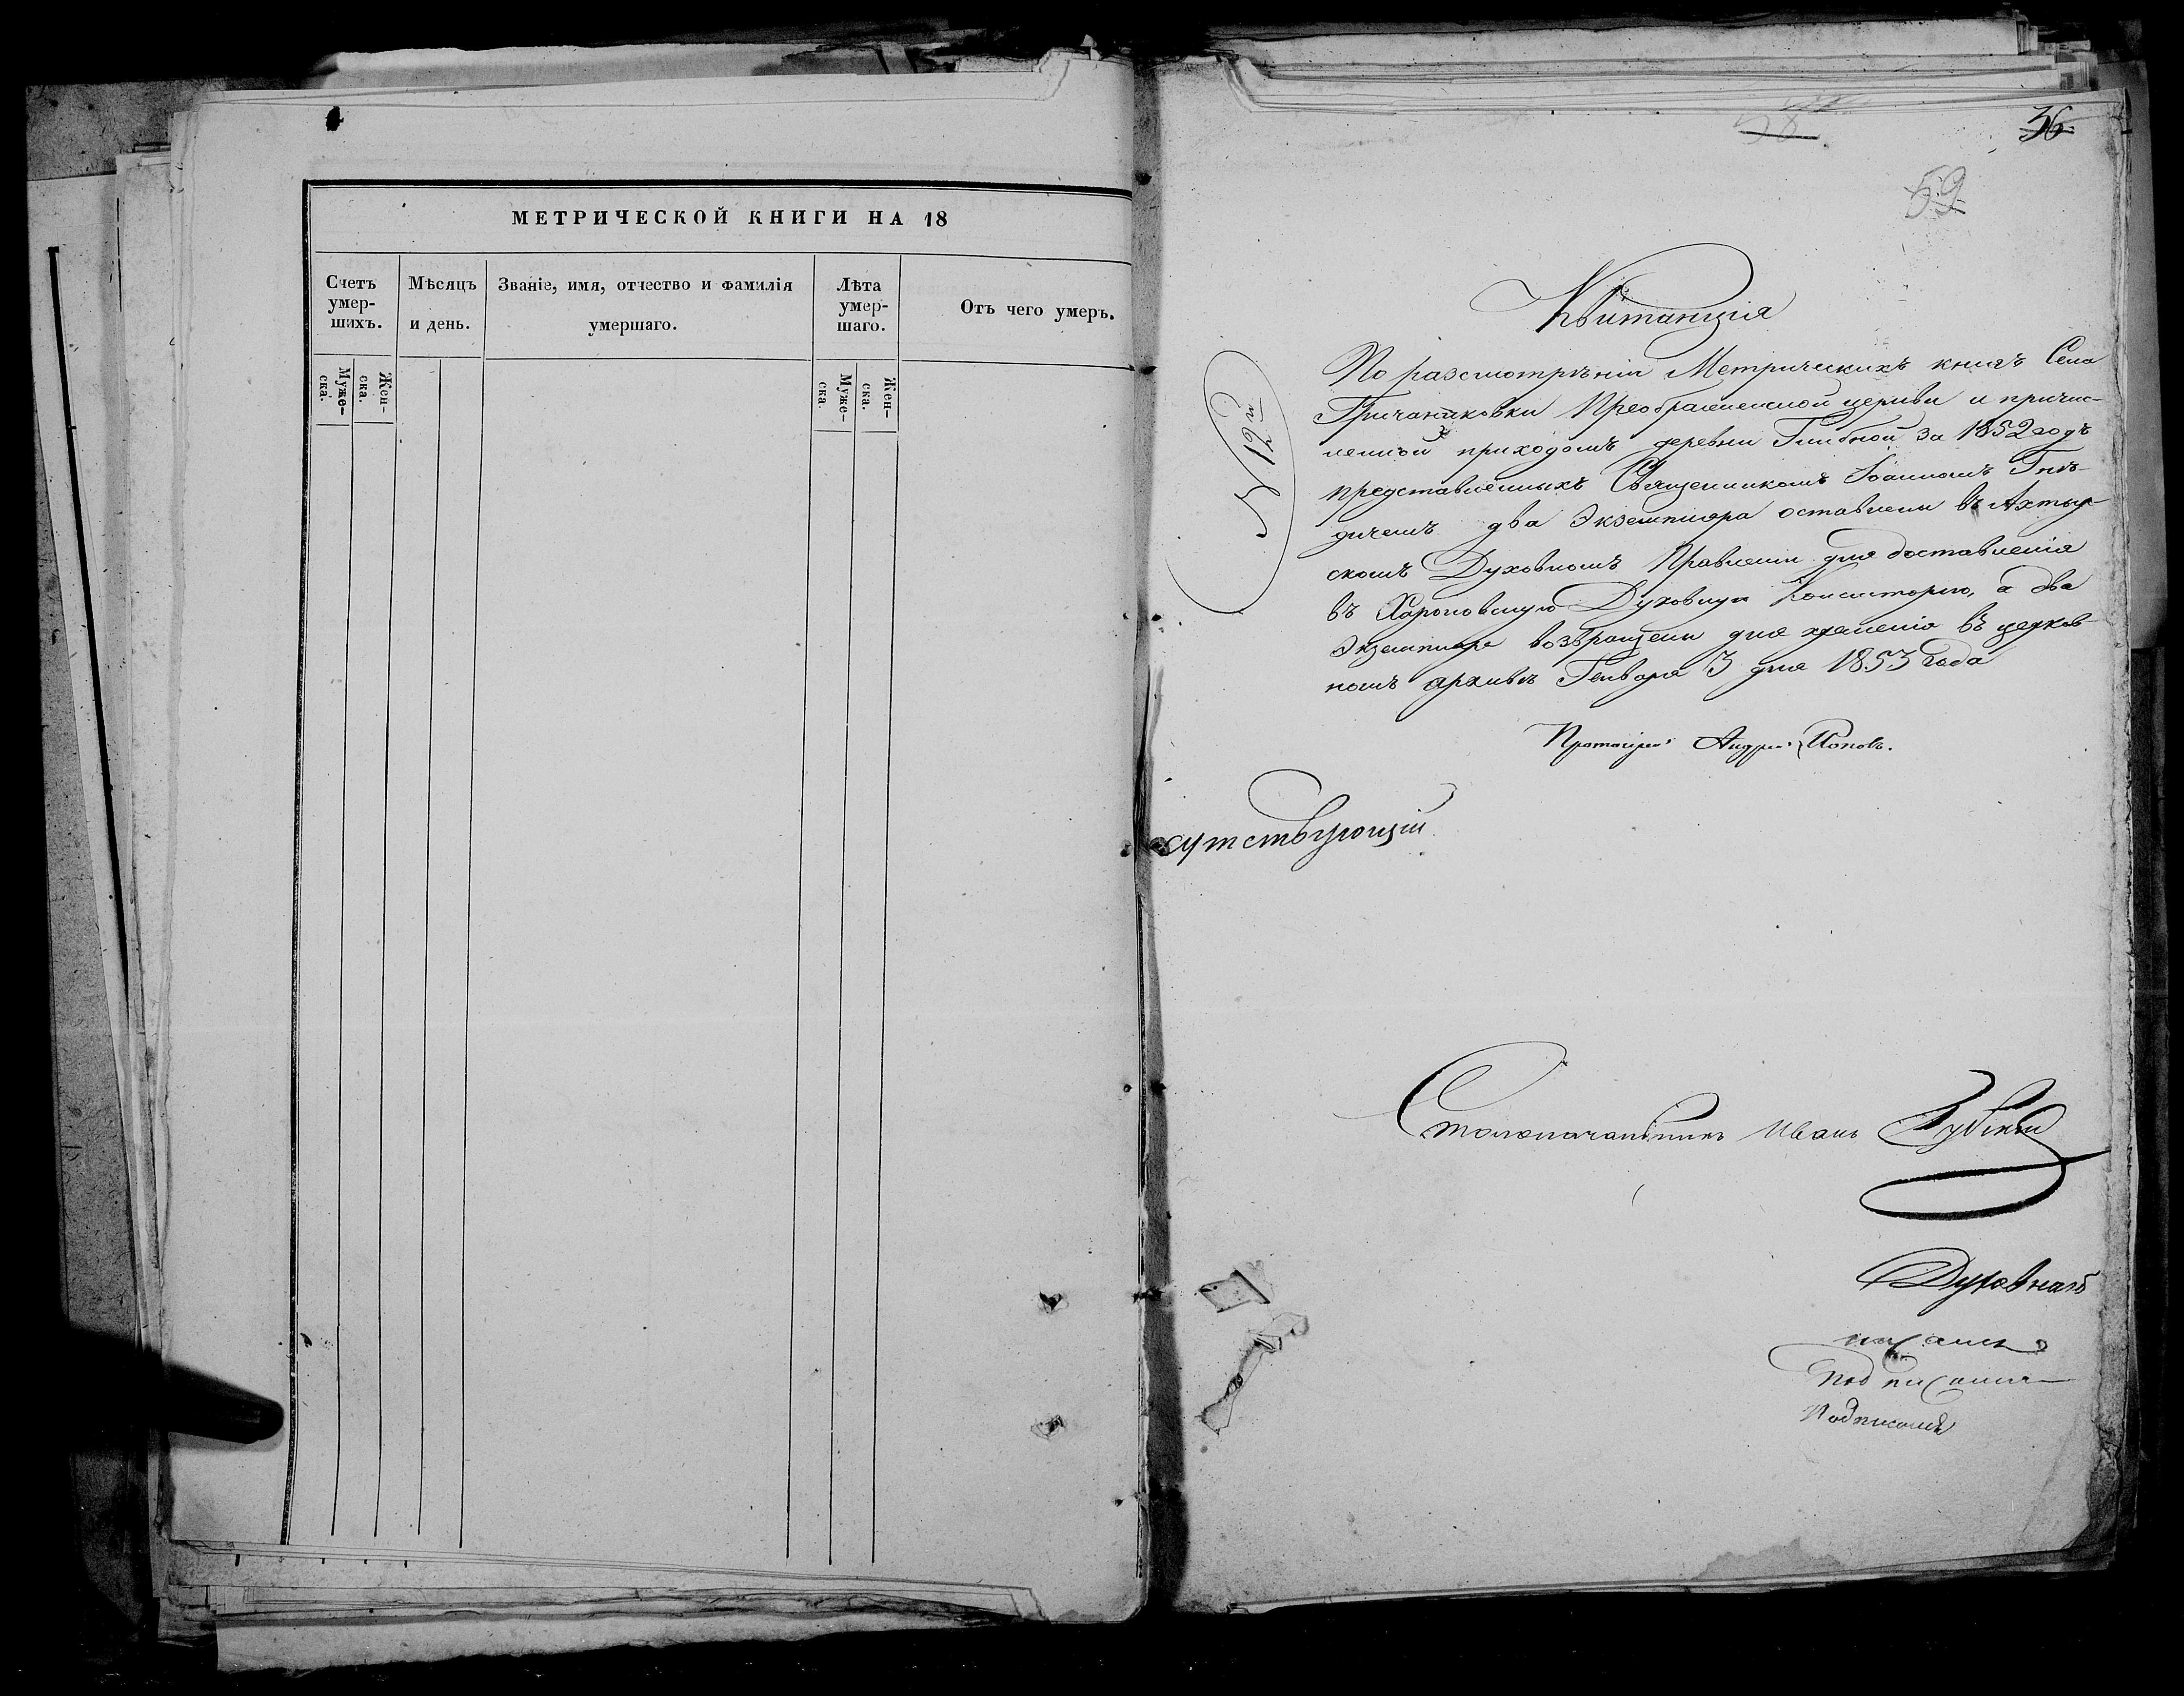 МЕТРИЧЕСКОЙ КНИГИ НА 18
Счетъ умер-шихъ.
Муже-ска.
Жен-ска.
Мѣсяцъ и день.
Званіе, имя, отчество и фамилія умершаго.
Лѣта умер-шаго.
Муже-ска
Жен-ска.
Отъ чего умеръ.
36
59
Квитанція
№ 19й
По разсмотрѣніи Метрическихъ книгъ Села
Гричаниковки Преображенской церкви и причис-
ленной приходомъ деревни за 1852 годъ
представленныхъ Священникомъ Іоанномъ Гнѣ-
дичемъ два Экземпляра оставлены въ Ахтыр-
скомъ Духовномъ Правленіи для доставленія
въ Харьковскую Духовную Консисторію, а два
Экземпляра возвращены для храненія въ церков-
номъ архивѣ Генваря 3 дня 1853 года
Протоіерей Андрей Поповъ.
сутствующій
Столоначальникъ Иванъ
Духовнаго